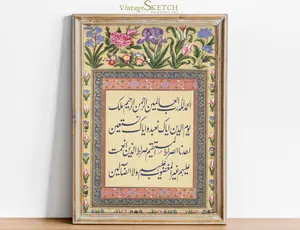 Vintage SKETCH
الحمد لله رب العالمين الرحمن الرحيم ملك
يوم الدين اياك نعبد واياك نستعين
اهدنا الصراط المستقيم صراط الذين انعمت
عليهم غير المغضوب عليهم ولا الضالين